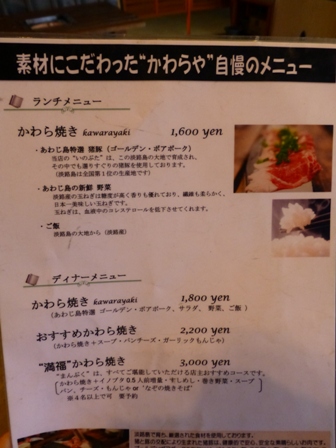 素材にこだわった“かわらや”自慢のメニュー
ランチメニュー
かわら焼き kawarayaki 1,600 yen
・あわじ島特選 猪豚（ゴールデン・ボアポーク）
当店の“いのぶた”は、この淡路島の大地で育成され、
その中でも選りすぐりの猪豚を使用しております。
（淡路島は全国第1位の生産地です）
・あわじ島の新鮮 野菜
淡路産の玉ねぎは糖度が高く香りも優れており、繊維も柔らかく、
日本一美味しい玉ねぎです。
玉ねぎは、血液中のコレステロールを低下させてくれます。
・ご飯
淡路島の大地から（淡路産）
ディナーメニュー
かわら焼き kawarayaki 1,800 yen
（あわじ島特選 ゴールデン・ボアポーク、サラダ、野菜、ご飯）
おすすめかわら焼き 2,200 yen
（かわら焼き＋スープ・パンチーズ・ガーリックもんじゃ）
“満福”かわら焼き 3,000 yen
“まんぷく”は、すべてご堪能していただける店主おすすめコースです。
かわら焼き＋イノブタ0.5人前増量・サしめし・巻き野菜・スープ
パン、チーズ・もんじゃ or“なぞの焼きそば”
※4名以上で可 要予約